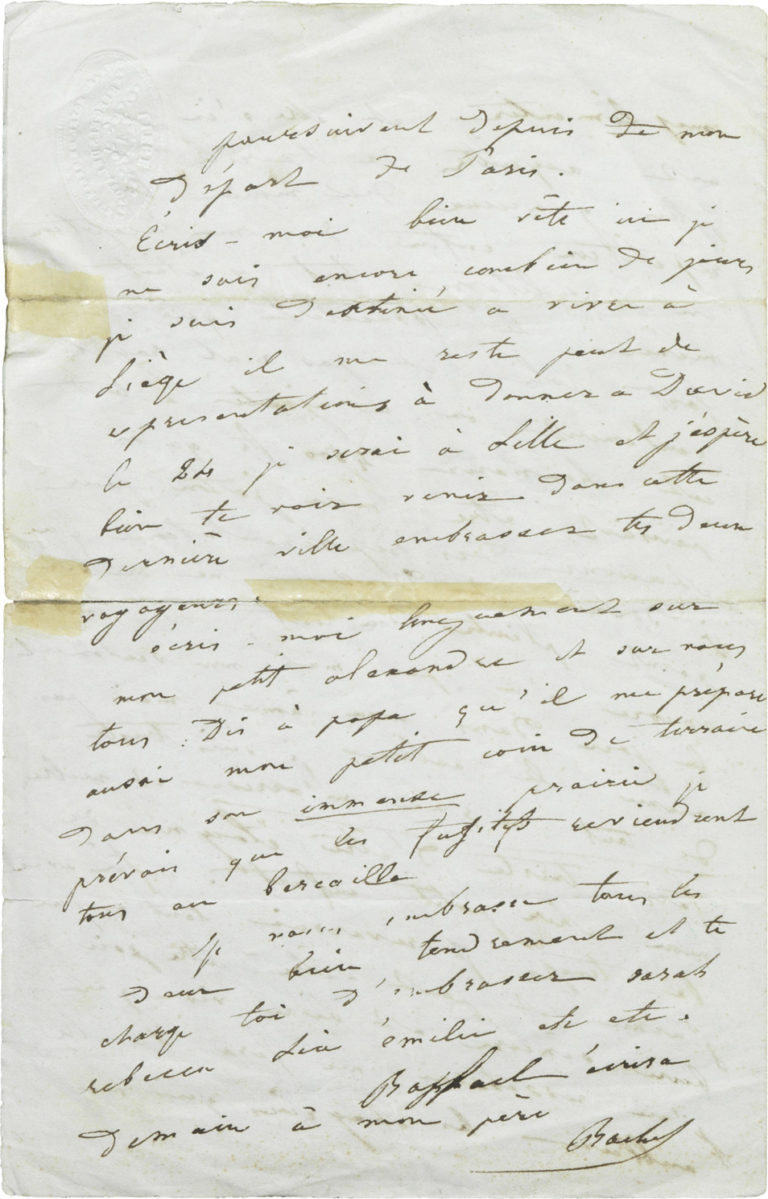 poursuivent depuis de mon
départ de Paris.
Écris-moi bien vête ici je
ne sais encore combien de jours
je suis destinée a river à
Liège il me reste peut de
représentations à donner a David
le 24 je serai à Lille et j'éspère
bien te voir venir dans cette
dernière ville embrasser tes deux
voyageurs.
écris-moi longuement sur
mon petit alexandre et sur vous
tous. Dis à papa qu'il me prépare
aussi mon petit coin de terraire
dans son immense prairie je
prévois que les fugitifs reviendront
tous au bercaille
Je vous embrasse tous les
deux bien tendrement et te
charge toi d'embrasser sarah
rebecca Lia émilie etc etc.
Raphael écrira
demain à mon père
Rachel